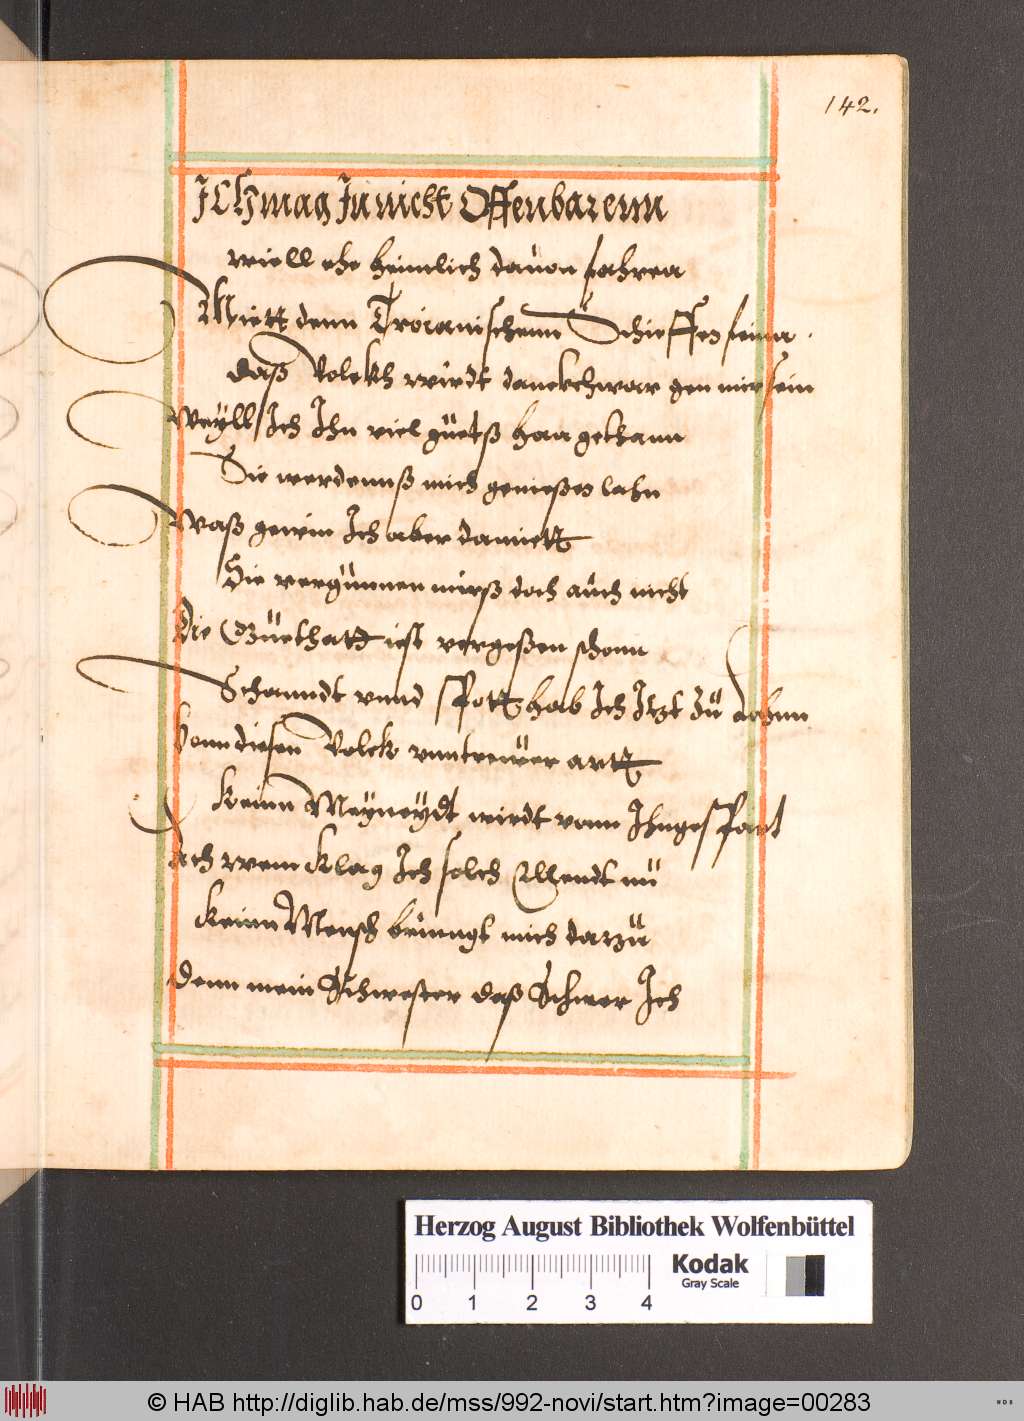 142.
ICH mag In nicht Offenbarenn
will ehe heimlich dauon fahren
Miett denn Troianischenn Schieffen seina
daß Volckh wirdt danckchwar gen mir sein
Weyll Ich Ihn viel güetß haa gethann
Sie werdennß mich genießen lahn
Waß gewin Ich aber damiett
Sie vergünnen mirß doch auch nicht
Die Güethatt ist vergeßen schonn
Schanndt vnnd Spott hab Ich Itzt Zü Lohnn
Vonn diesen Volck vnntrewer artt
Keinn Meyneydt wirdt vonn Ihn gespart
Ach wem klag Ich solch Ellendt nü
Keinn Mensch bringt mich darzü
Denn mein Schwester daß Schwer Ich
Herzog August Bibliothek Wolfenbüttel
Kodak
Gray Scale
0 1 2 3 4
© HAB http://diglib.hab.de/mss/992-novi/start.htm?image=00283